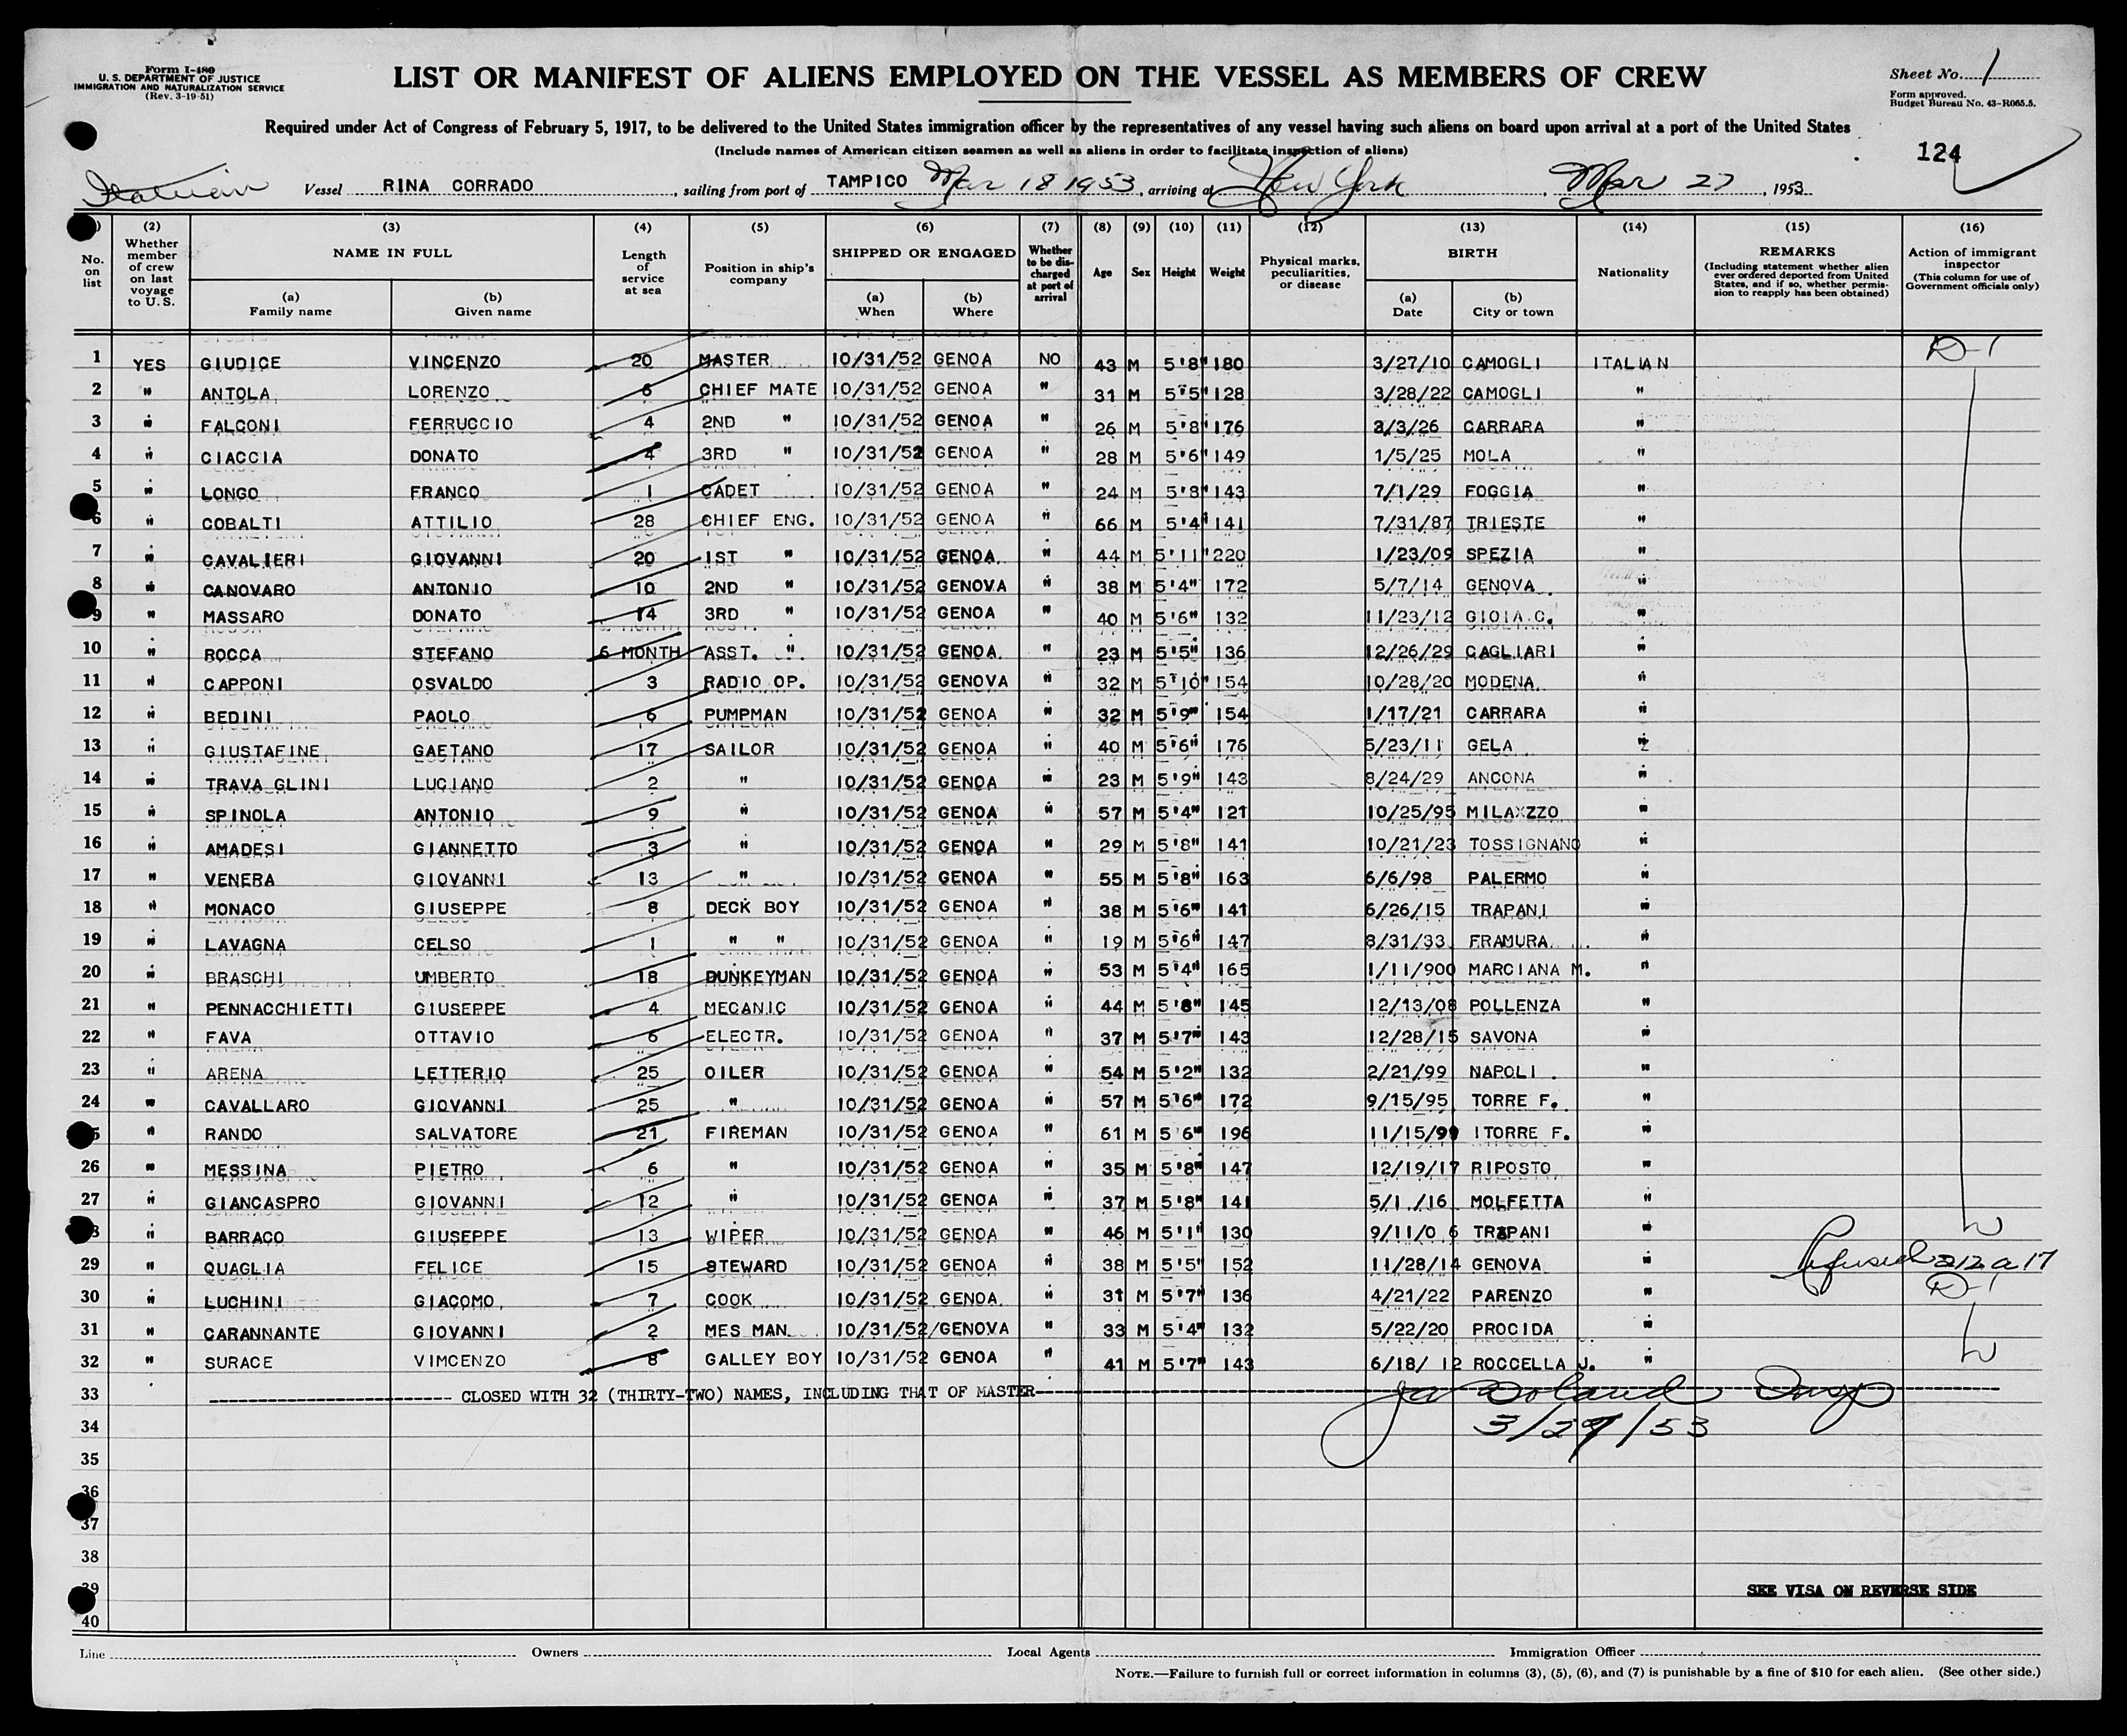 Form I-480
U. S. DEPARTMENT OF JUSTICE
IMMIGRATION AND NATURALIZATION SERVICE
(Rev. 3-19-51)
LIST OR MANIFEST OF ALIENS EMPLOYED ON THE VESSEL AS MEMBERS OF CREW
Sheet No. 1
Form approved.
Budget Bureau No. 43-R065.5.
Required under Act of Congress of February 5, 1917, to be delivered to the United States immigration officer by the representatives of any vessel having such aliens on board upon arrival at a port of the United States
(Include names of American citizen seamen as well as aliens in order to facilitate inspection of aliens)
124
Italian Vessel RINA CORRADO, sailing from port of TAMPICO Mar 18 1953, arriving at New York, Mar 27, 1953
(2) (3) (4) (5) (6) (7) (8) (9) (10) (11) (12) (13) (14) (15) (16)
No. on list
Whether member of crew on last voyage to U. S.
NAME IN FULL
(a) Family name
(b) Given name
Length of service at sea
Position in ship's company
SHIPPED OR ENGAGED
(a) When
(b) Where
Whether to be discharged at port of arrival
Age
Sex
Height
Weight
Physical marks, peculiarities, or disease
BIRTH
(a) Date
(b) City or town
Nationality
REMARKS
(Including statement whether alien ever ordered deported from United States, and if so, whether permission to reapply has been obtained)
Action of immigrant inspector
(This column for use of Government officials only)
1 YES GIUDICE VINCENZO 20 MASTER 10/31/52 GENOA NO 43 M 5'8" 180 3/27/10 CAMOGLI ITALIAN D-1
2 " ANTOLA LORENZO 6 CHIEF MATE 10/31/52 GENOA " 31 M 5'5" 128 3/28/22 CAMOGLI "
3 " FALCONI FERRUCCIO 4 2ND " 10/31/52 GENOA " 26 M 5'8" 176 3/3/26 CARRARA "
4 " CIACCIA DONATO 4 3RD " 10/31/52 GENOA " 28 M 5'6" 149 1/5/25 MOLA "
5 " LONGO FRANCO 1 CADET 10/31/52 GENOA " 24 M 5'8" 143 7/1/29 FOGGIA "
6 " COBALTI ATTILIO 28 CHIEF ENG. 10/31/52 GENOA " 66 M 5'4" 141 7/31/87 TRIESTE "
7 " CAVALIERI GIOVANNI 20 1ST " 10/31/52 GENOA " 44 M 5'11" 220 1/23/09 SPEZIA "
8 " CANOVARO ANTONIO 10 2ND " 10/31/52 GENOVA " 38 M 5'4" 172 5/7/14 GENOVA "
9 " MASSARO DONATO 14 3RD " 10/31/52 GENOA " 40 M 5'6" 132 11/23/12 GIOIA C. "
10 " ROCCA STEFANO 6 MONTH ASST. " 10/31/52 GENOA " 23 M 5'5" 136 12/26/29 CAGLIARI "
11 " CAPPONI OSVALDO 3 RADIO OP. 10/31/52 GENOVA " 32 M 5'10" 154 10/28/20 MODENA "
12 " BEDINI PAOLO 6 PUMPMAN 10/31/52 GENOA " 32 M 5'9" 154 1/17/21 CARRARA "
13 " GIUSTAFINE GAETANO 17 SAILOR 10/31/52 GENOA " 40 M 5'6" 176 5/23/11 GELA "
14 " TRAVA GLINI LUCIANO 2 " 10/31/52 GENOA " 23 M 5'9" 143 8/24/29 ANCONA "
15 " SPINOLA ANTONIO 9 " 10/31/52 GENOA " 57 M 5'4" 121 10/25/95 MILAXZZO "
16 " AMADESI GIANNETTO 3 " 10/31/52 GENOA " 29 M 5'8" 141 10/21/23 TOSSIGNANO "
17 " VENERA GIOVANNI 13 " 10/31/52 GENOA " 55 M 5'8" 163 6/6/98 PALERMO "
18 " MONACO GIUSEPPE 8 DECK BOY 10/31/52 GENOA " 38 M 5'6" 141 6/26/15 TRAPANI "
19 " LAVAGNA CELSO 1 " " 10/31/52 GENOA " 19 M 5'6" 147 8/31/33 FRAMURA "
20 " BRASCHI UMBERTO 18 DUNKEYMAN 10/31/52 GENOA " 53 M 5'4" 165 1/11/900 MARCIANA M. "
21 " PENNACCHIETTI GIUSEPPE 4 MECANIC 10/31/52 GENOA " 44 M 5'8" 145 12/13/08 POLLENZA "
22 " FAVA OTTAVIO 6 ELECTR. 10/31/52 GENOA " 37 M 5'7" 143 12/28/15 SAVONA "
23 " ARENA LETTERIO 25 OILER 10/31/52 GENOA " 54 M 5'2" 132 2/21/99 NAPOLI "
24 " CAVALLARO GIOVANNI 25 " 10/31/52 GENOA " 57 M 5'6" 172 9/15/95 TORRE F. "
RANDO SALVATORE 21 FIREMAN 10/31/52 GENOA " 61 M 5'6" 196 11/15/99 ITORRE F. "
26 " MESSINA PIETRO 6 " 10/31/52 GENOA " 35 M 5'8" 147 12/19/17 RIPOSTO "
27 " GIANCASPRO GIOVANNI 12 " 10/31/52 GENOA " 37 M 5'8" 141 5/1 /16 MOLFETTA "
" BARRACO GIUSEPPE 13 WIPER 10/31/52 GENOA " 46 M 5'1" 130 9/11/0 6 TRAPANI "
29 " QUAGLIA FELICE 15 STEWARD 10/31/52 GENOA " 38 M 5'5" 152 11/28/14 GENOVA " Refused 212 a 17
30 " LUCHINI GIACOMO 7 COOK 10/31/52 GENOA " 31 M 5'7" 136 4/21/22 PARENZO " D-1
31 " CARANNANTE GIOVANNI 2 MES MAN 10/31/52/GENOVA " 33 M 5'4" 132 5/22/20 PROCIDA "
32 " SURACE VIMCENZO 8 GALLEY BOY 10/31/52 GENOA " 41 M 5'7" 143 6/18/ 12 ROCCELLA J. "
33 CLOSED WITH 32 (THIRTY-TWO) NAMES, INCLUDING THAT OF MASTER Insp
34 3/27/53
35
36
37
38
39 SEE VISA ON REVERSE SIDE
40
Line Owners Local Agents Immigration Officer
NOTE.—Failure to furnish full or correct information in columns (3), (5), (6), and (7) is punishable by a fine of $10 for each alien. (See other side.)